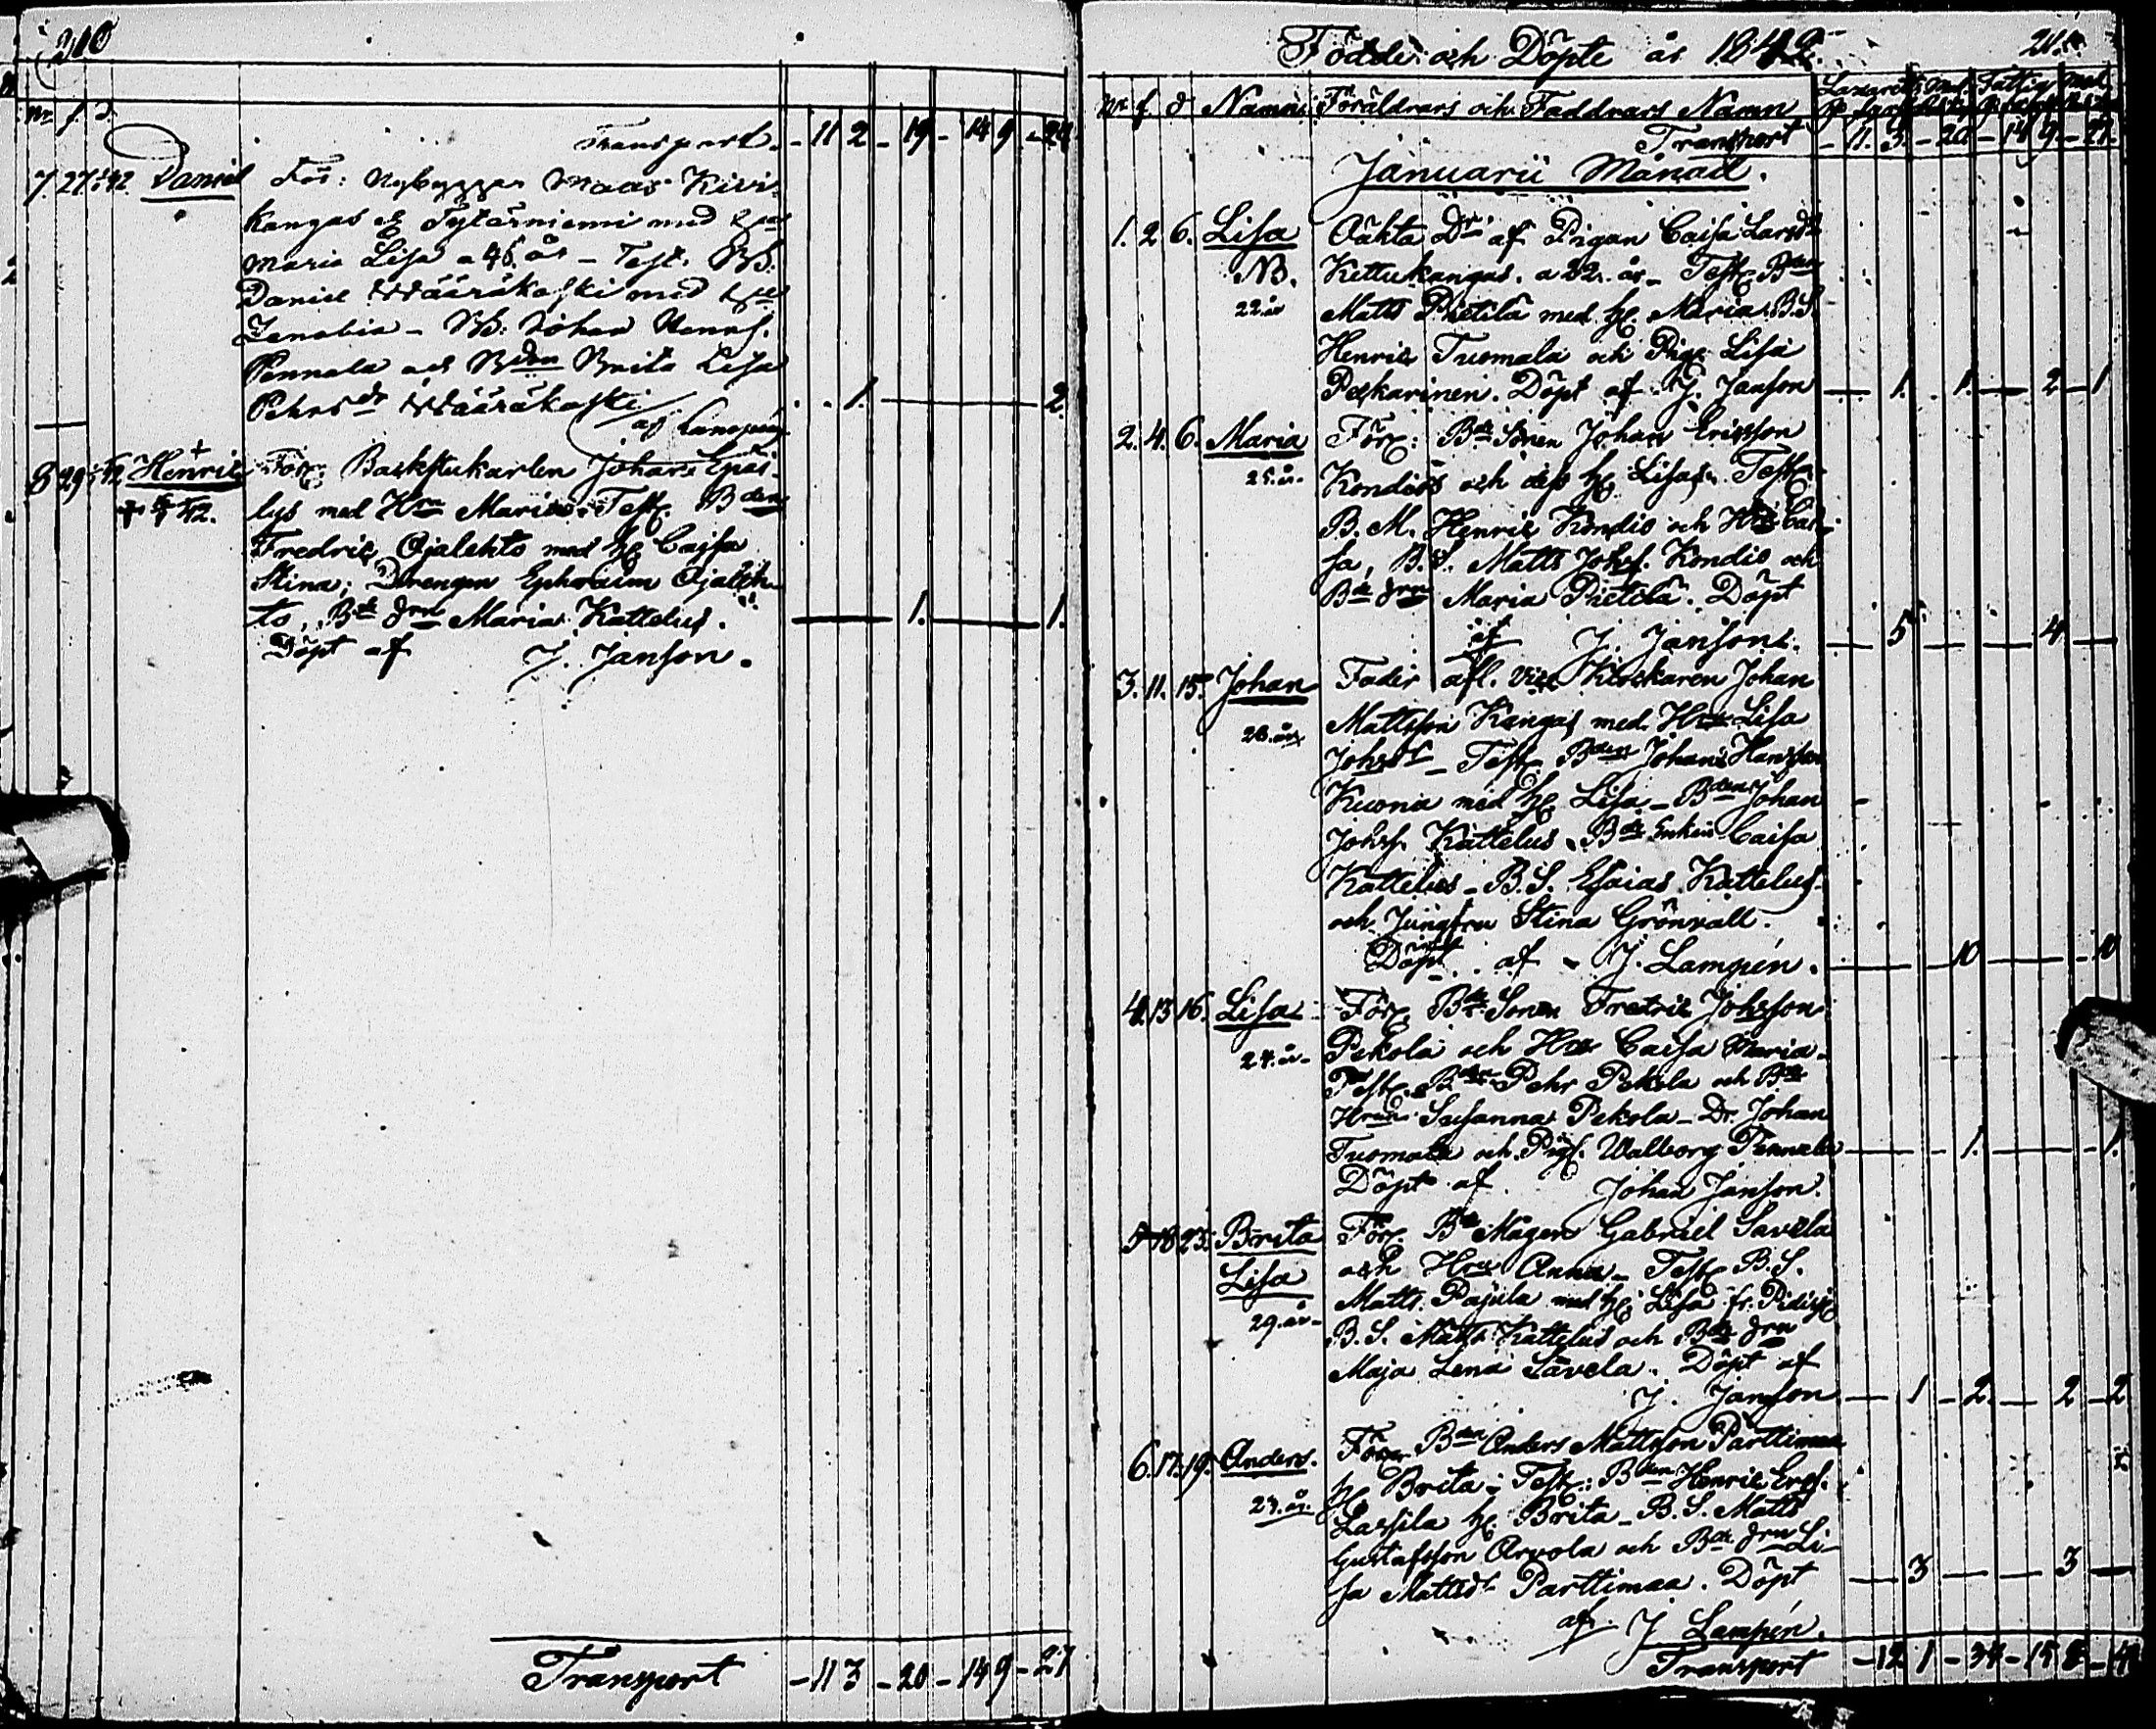 210
Nr f. d.
Transport. - 11 2 - 19 - 14 9 - 24
7. 27 Daniel För: Nybyggar Maas Kivi-
kangas Tytärniemi med
Maria Lisa a 45 år - Test.
Daniel Wääräkoski med
Zenobia - Johan
Pennala och Brita Lisa
Pehrsdr Wääräkoski 1. 2.
af Lampén
8 29 Henric Förx. Backstukarlen Johan
lys med Hru Maria. Testx. Bden
Fredric Ojalehto med Cajsa
Stina; Drengen Ephraim Ojaleh-
to, Bde drn Maria Kattelus. 1. 1.
Döpt af J. Janson.
Transport - 11 3 - 20 - 14 9 - 27
Födde och Döpte år 1842. 211.
Nr f. d Namn Föräldrars och Faddrars Namn
Transport - 11. 3. - 20 - 14 9 - 27.
Januarii Månad.
1. 2. 6. Lisa Oäkta Dr af Pigan Caisa Larsdr
NB. Kettukangas. a 22. år - Testx. Bden
22 år Matts Pietilä med Maria. B.S.
Henric Tuomala och Pig. Lisa
Peskarinen. Döpt af J. Janson 1. 1. 2 1
2. 4. 6. Maria Förx: Bde Sonen Johan Ericsson
25. år. Kondio och dess Lisa. Testx
B. M. Henric Kondio och Hru Cai-
sa, B.S. Matts Johss. Kondio och
Bde drn Maria Pietilä. Döpt
af J. Janson. 5 4
3. 11. 15. Johan Fader afl. Vice Klockaren Johan
Mattsson Kangas med Hru Lisa
Johsdr - Testx Bden Johan Hansson
Kuona med Lisa - Bden Johan
Johss. Kattelus. Bde Enkan Caisa
Kattelus - B.S. Esaias Kattelus
och Jungfru Stina Grönvall.
Döpt af J. Lampén. 10 10
4. 13 16. Lisa Förx. Bde Sonen Fredric Johsson
24. år. Pekola och Hru Caisa Maria.
Testx. Bden Pehr Pekola och Bde
Hrun Susanna Pekola - Dr. Johan
Tuomala och Pig. Walborg Pennala 1. 1.
Döpt af Johan Janson.
5 18 23. Brita Förx. Bde Mågen Gabriel Savela
Lisa och Hru Anna - Testx B.S.
29. år Matts Pajula med Lisa fr.
B.S. Matts Kattelus och Bde drn
Maja Lena Savela. Döpt af
J. Janson 1 - 2. 2 - 2
6. 17. 19. Anders. Förx Bden Anders Mattsson Parttimaa
23. år. Brita - Testx: Bden Henric Ersf.
Lassila Brita - B.S. Matts
Gustafsson Arvola och Bde drn Li-
sa Mattsdr Parttimaa. Döpt 3 3
af J Lampén.
Transport - 12 1 - 34 - 15 8 - 41